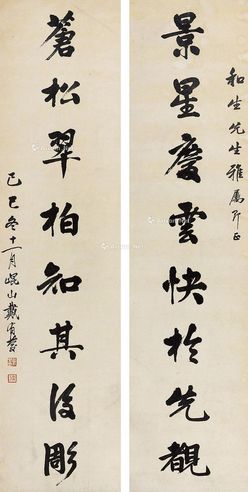 和生先生雅屬正
景星慶雲快於先覩
蒼松翠柏知其後彫
己巳冬十一月崐山戴